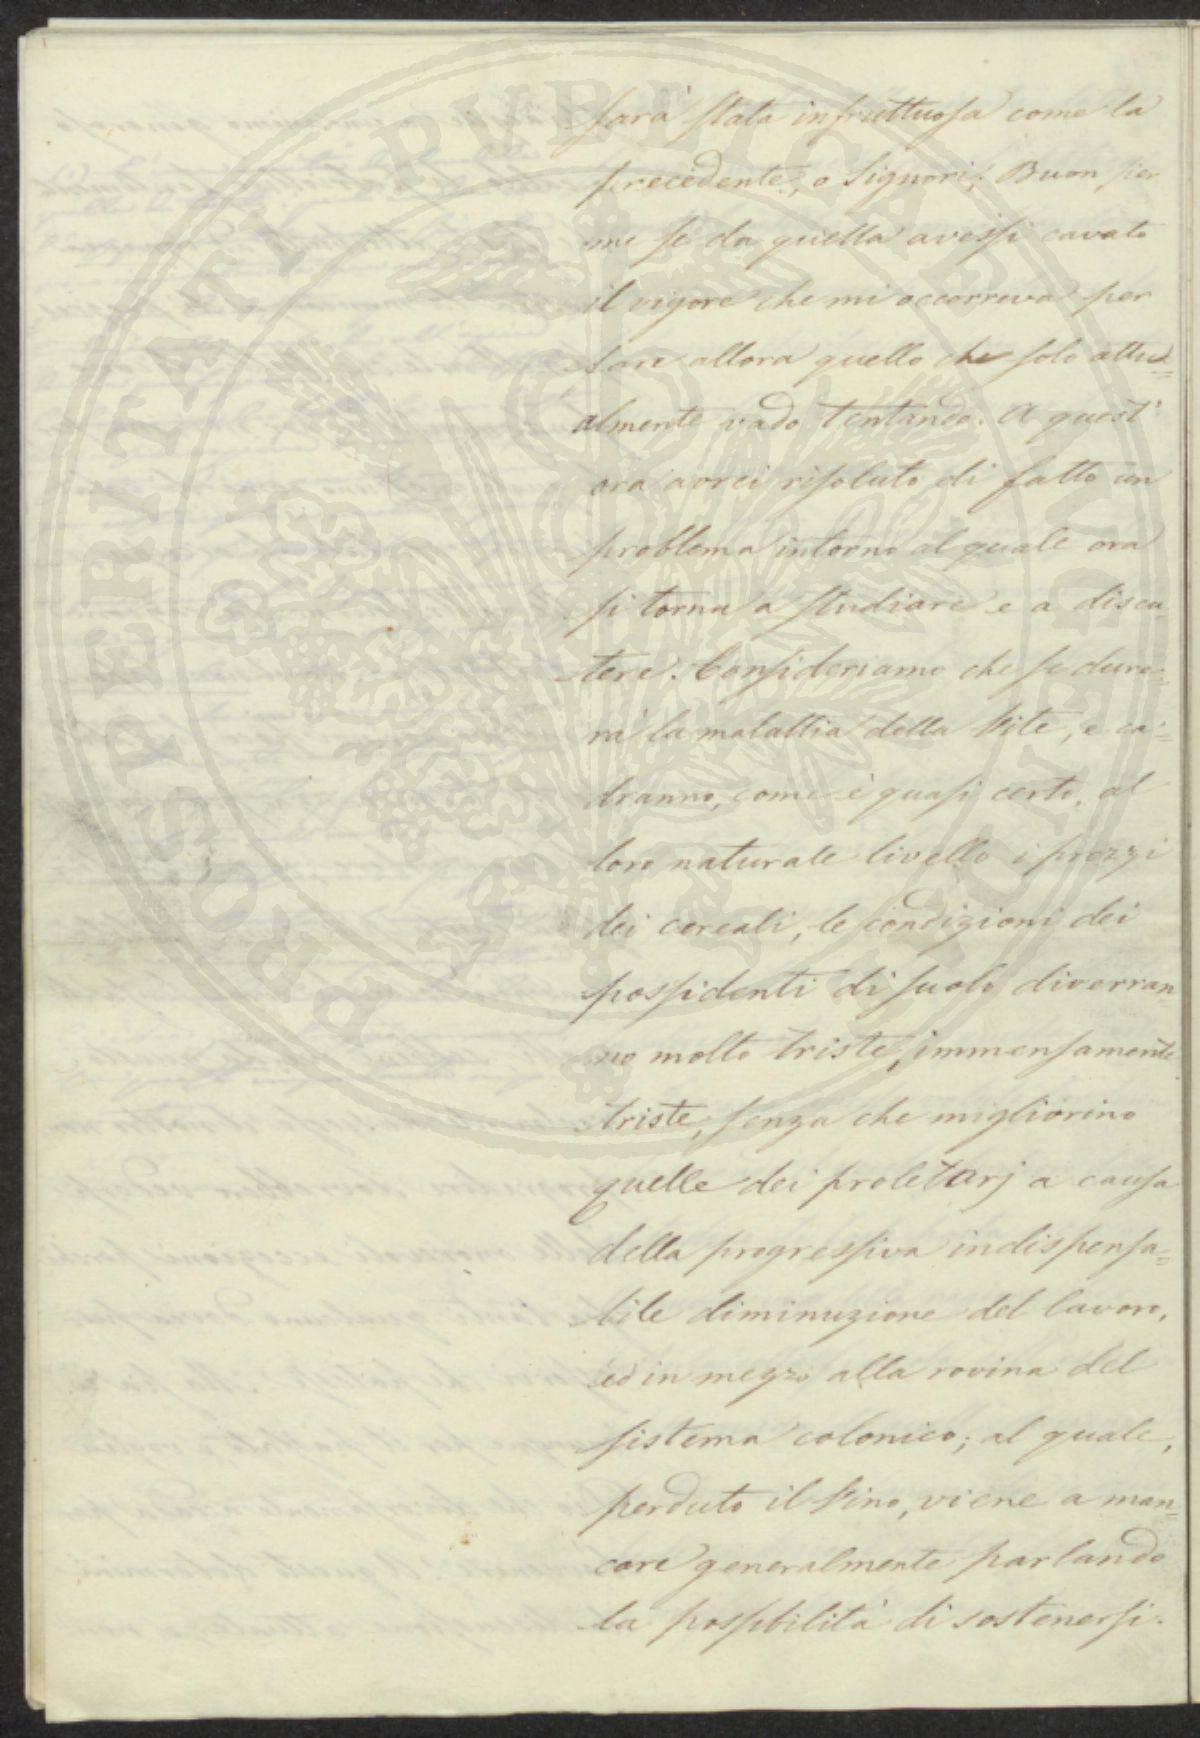 PROSPERITATI PUBLICAE AUGENDAE
sarà stata infruttuosa come la
precedente, o Signori! Buon per
me se da quella avessi cavato
il vigore che mi occorreva per
fare allora quello che solo attu=
almente vado tentando. A quest'
ora avrei risoluto di fatto un
problema intorno al quale ora
si torna a studiare e a discu=
tere. Consideriamo che se dure=
rà la malattia della Vite, e ca=
dranno, come è quasi certo, al
loro naturale livello i prezzi
dei cereali, le condizioni dei
possidenti di suolo diverran=
no molto triste, immensamente
triste, senza che migliorino
quelle dei proletarj a causa
della progressiva indispensa=
bile diminuzione del lavoro,
ed in mezzo alla rovina del
sistema colonico; al quale,
perduto il Vino, viene a man=
care generalmente parlando
la possibilità di sostenersi.